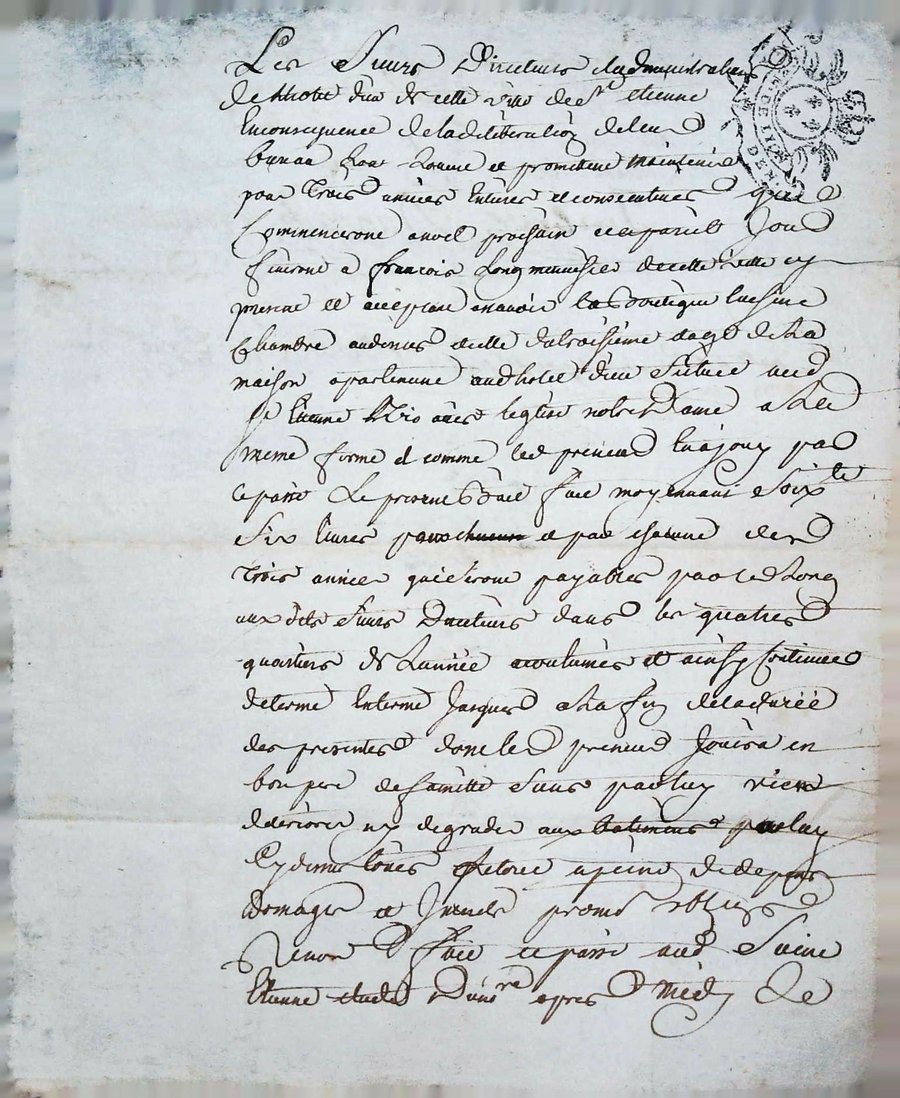 Les Sieurs Directeurs et administrateurs
de L'hotel dieu de cette ville de St etienne
En consequence de la deliberation de leur
bureau ont Loué et promettent maintenir
pour Trois années Entieres et consecutives qui
Commenceront au prochain et a pareil Jour
finiront a françois Long menuisier de cette ville cy
present et acceptant a savoir la Boutique Cuisine
Chambre au dessus celle du troisieme etage de La
maison apartenant aud hotel dieu Scituée aud
St Etienne l'eglise notre Dame a La
meme forme et comme led preneur En a jouy par
Le present Bail fait moyennant Soixte
Six livres par chacune des
Trois années qui seront payables par led Long
aux dits Sieurs Directeurs dans les quatres
quartiers de L'année acoutumés et ainsy Continuer
de terme En terme Jusques a La fin de la durée
des presentes dont led preneur Jouira en
bon pere de famille Sans par luy rien
deteriorer ny degrader aux batimens par luy
Cy dessus Loués a peine de depens
domages et Interets promis obligé
Renoncé fait et passé aud Saint
Etienne apres Midy Le